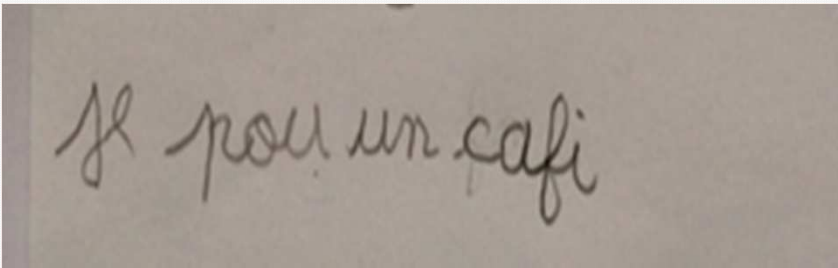 je pou un cafi